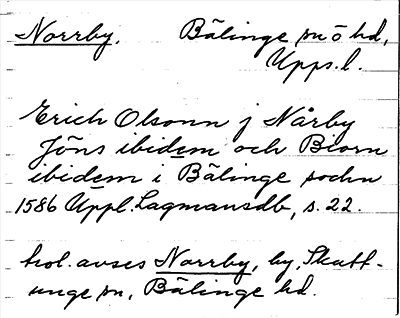 Norrby. Bälinge sn o hd,
Upps. l.
Erich Olsonn j Nårby
Jöns ibidem och Biorn
ibidem i Bälinge sochn
1586 Uppl. Lagmansdb, s. 22.
trol. avses Norrby, by, Skutt-
unge sn, Bälinge hd.